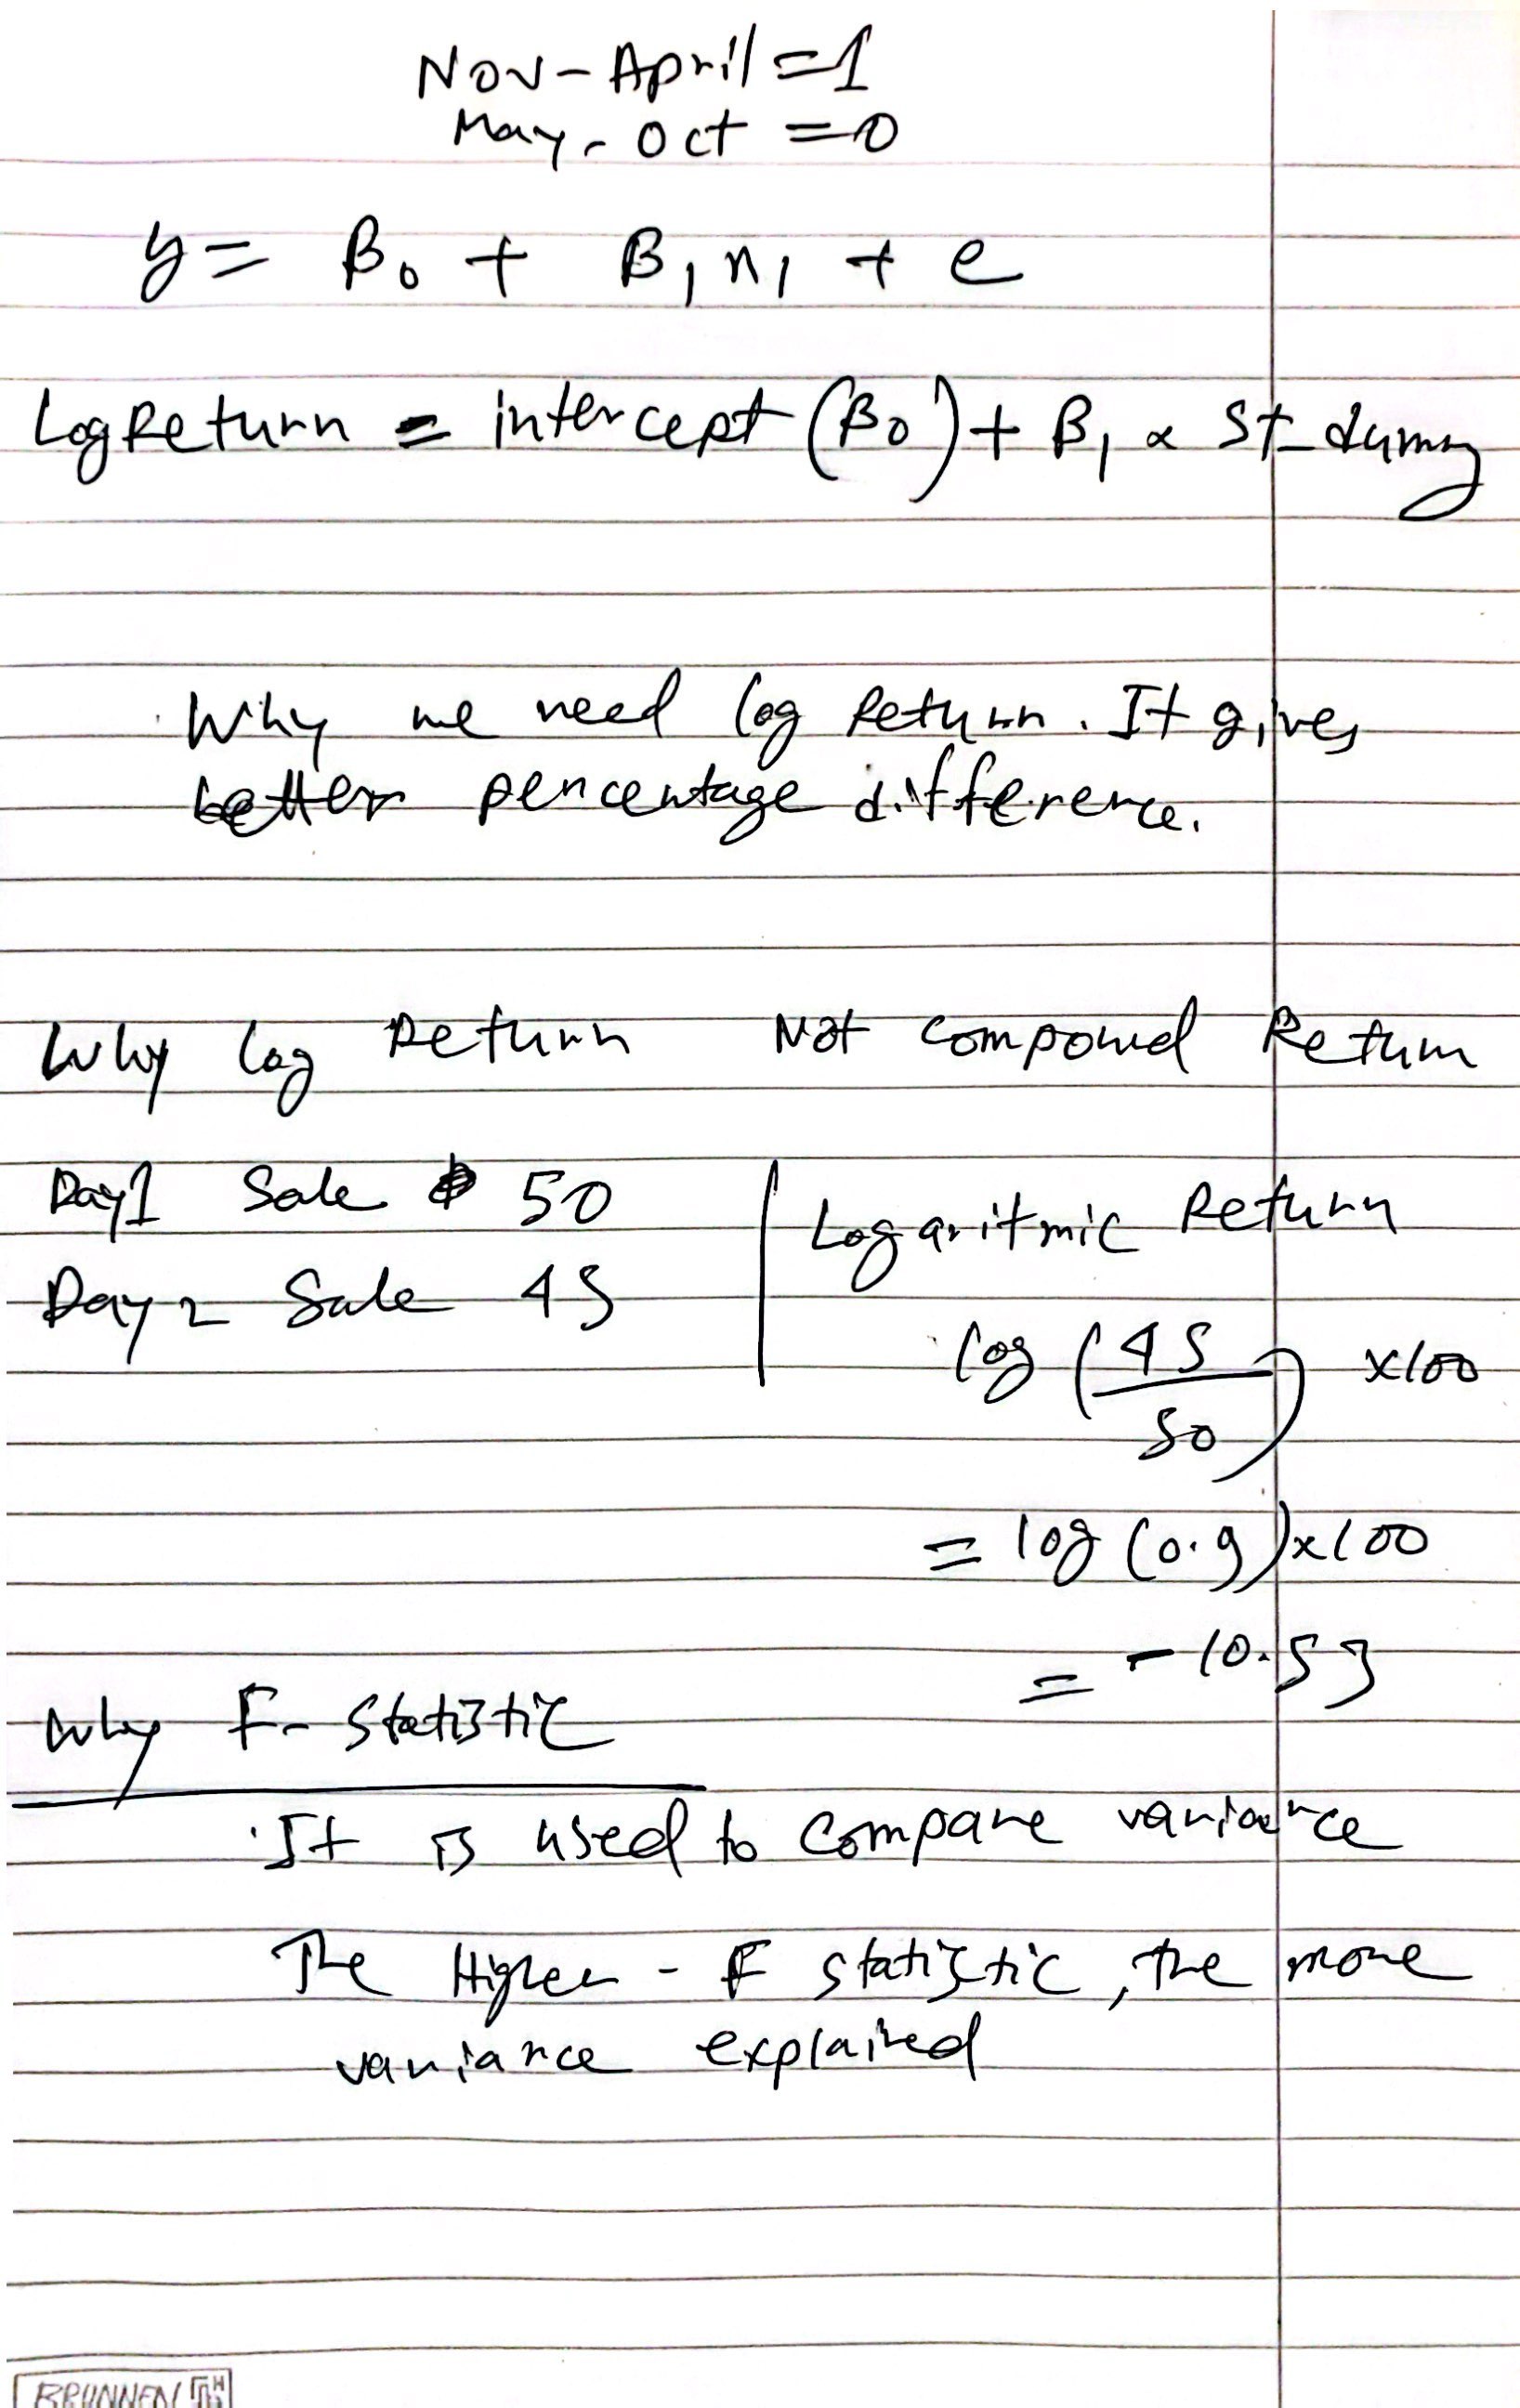 Nov - April = 1
May - Oct = 0
y = B₀ + B₁ x₁ + e
Log Return = intercept (B₀) + B₁ × St_dummy
Why we need log Return. It gives
better percentage difference.
Why log Return Not compound Return
Day 1 Sale 50
Day 2 Sale 45
Logaritmic Return
log (45/50) ×100
= log (0.9) ×100
= -10.53
Why F- Statistic
It is used to compare variance
The Higher - F statistic, the more
variance explained
BRUNNEN